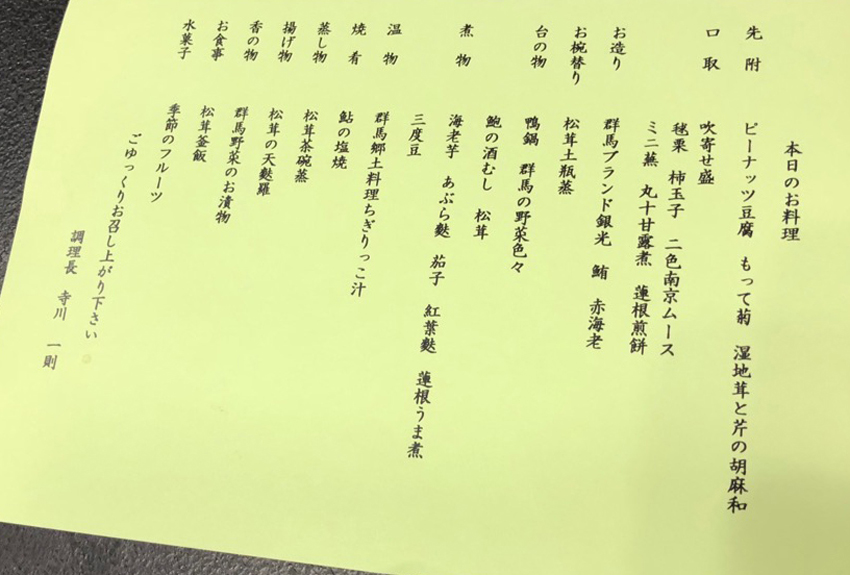 本日のお料理
先附 ピーナッツ豆腐 もって菊 湿地茸と芹の胡麻和
口取 吹寄せ盛
毬栗 柿玉子 二色南京ムース
ミニ蕪 丸十甘露煮 蓮根煎餅
お造り 群馬ブランド銀光 鮪 赤海老
お椀替り 松茸土瓶蒸
台の物 鴨鍋 群馬の野菜色々
鮑の酒むし 松茸
煮物 海老芋 あぶら麩 茄子 紅葉麩 蓮根うま煮
三度豆
温物 群馬郷土料理ちぎりっこ汁
焼肴 鮎の塩焼
蒸し物 松茸茶碗蒸
揚げ物 松茸の天麩羅
香の物 群馬野菜のお漬物
お食事 松茸釜飯
水菓子 季節のフルーツ
ごゆっくりお召し上がり下さい
調理長 寺川 一則